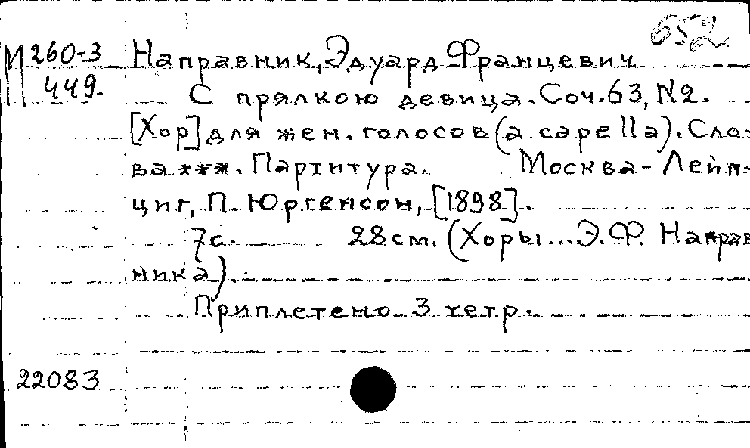 652
М 260-3
449.
Направник, Эдуард Францевич
С прялкою девица. Соч. 63, №2.
[Хор] для жен. голосов (a capella). Сло-
ва ***. Партитура. Москва - Лейп-
циг, П. Юргенсон, [1898].
7 с. 28 см. (Хоры... Э.Ф. Направ
ника).
Приплетено 3 тетр.
22083